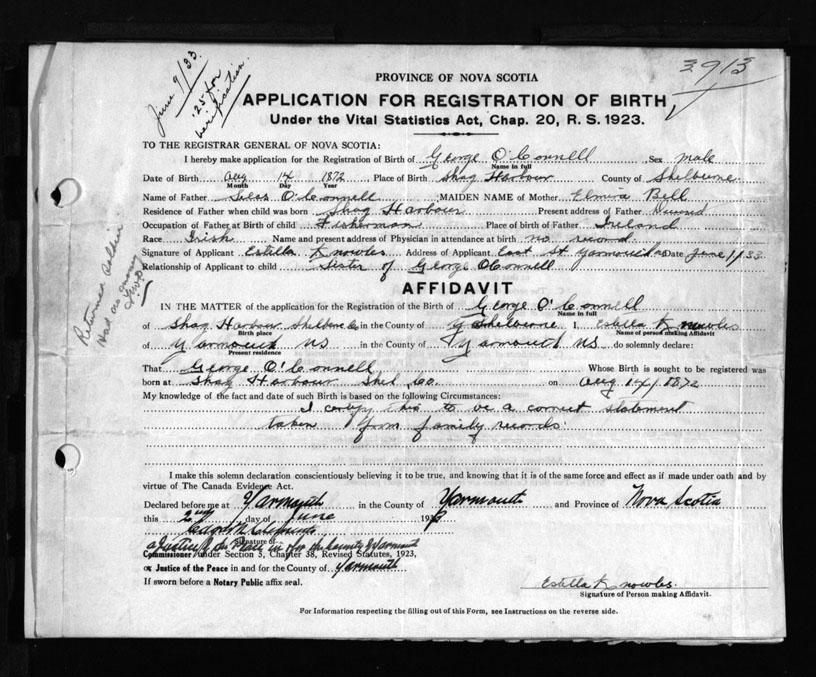 June 9/33
.25 for
verification
3913
PROVINCE OF NOVA SCOTIA
APPLICATION FOR REGISTRATION OF BIRTH
Under the Vital Statistics Act, Chap. 20, R. S. 1923.
TO THE REGISTRAR GENERAL OF NOVA SCOTIA:
I hereby make application for the Registration of Birth of George O'Connell Sex male
Name in full
Date of Birth Aug 14 1872 Place of Birth Shag Harbour County of Shelburne
Month Day Year
Name of Father O'Connell MAIDEN NAME of Mother Elmira Bell
Residence of Father when child was born Shag Harbour Present address of Father
Occupation of Father at Birth of child Fisherman Place of birth of Father Ireland
Race Irish Name and present address of Physician in attendance at birth no record
Signature of Applicant Estella Knowles Address of Applicant East St Yarmouth Date June 1/33
Relationship of Applicant to child Sister of George O'Connell
Returned
Had as
AFFIDAVIT
IN THE MATTER of the application for the Registration of the Birth of George O'Connell
Name in full
of Shag Harbour Shelburne Co in the County of Shelburne I, Estella Knowles
Birth place Name of person making Affidavit
of Yarmouth NS in the County of Yarmouth NS do solemnly declare:
Present residence
That George O'Connell Whose Birth is sought to be registered was
born at Shag Harbour Shel Co. on Aug 14/1872
My knowledge of the fact and date of such Birth is based on the following Circumstances:
I certify this to be a correct statement
taken from family records.
I make this solemn declaration conscientiously believing it to be true, and knowing that it is of the same force and effect as if made under oath and by
virtue of The Canada Evidence Act.
Declared before me at Yarmouth in the County of Yarmouth and Province of Nova Scotia
this 2nd day of June 193
Signature of
a Justice of the Peace in & for the County of Yarmouth
Commissioner under Section 3, Chapter 38, Revised Statutes, 1923,
or Justice of the Peace in and for the County of Yarmouth
If sworn before a Notary Public affix seal.
Estella Knowles.
Signature of Person making Affidavit.
For Information respecting the filling out of this Form, see Instructions on the reverse side.